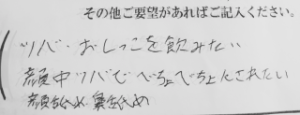 その他ご要望があればご記入ください。
ツバ・おしっこを飲みたい
顔中ツバでべちょべちょにされたい
顔舐め 鼻舐め